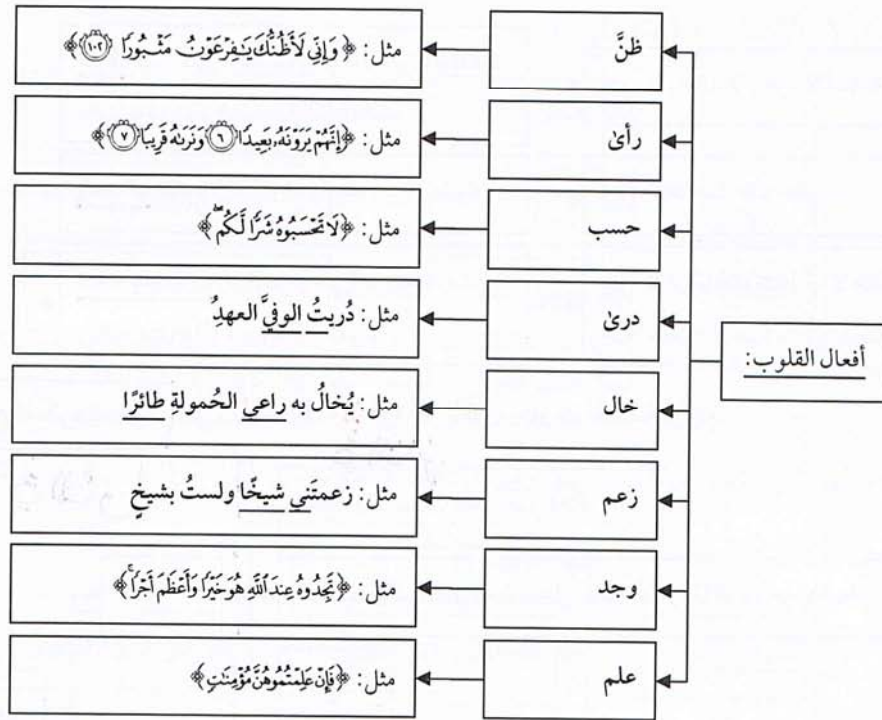 أفعال القلوب:
ظنَّ
مثل: ﴿وَإِنِّي لَأَظُنُّكَ يَٰفِرْعَوْنُ مَثْبُورًا ١٠٢﴾
رأىٰ
مثل: ﴿إِنَّهُمْ يَرَوْنَهُۥ بَعِيدًا ٦ وَنَرَىٰهُ قَرِيبًا ٧﴾
حسب
مثل: ﴿لَا تَحْسَبُوهُ شَرًّا لَّكُمۖ﴾
درىٰ
مثل: دُريتُ الوفيَّ العهدِ
خال
مثل: يُخالُ به راعي الحُمولةِ طائرًا
زعم
مثل: زعمتَني شيخًا ولستُ بشيخٍ
وجد
مثل: ﴿تَجِدُوهُ عِندَ ٱللَّهِ هُوَ خَيْرًا وَأَعْظَمَ أَجْرًاۚ﴾
علم
مثل: ﴿فَإِنْ عَلِمْتُمُوهُنَّ مُؤْمِنَٰتٍ﴾